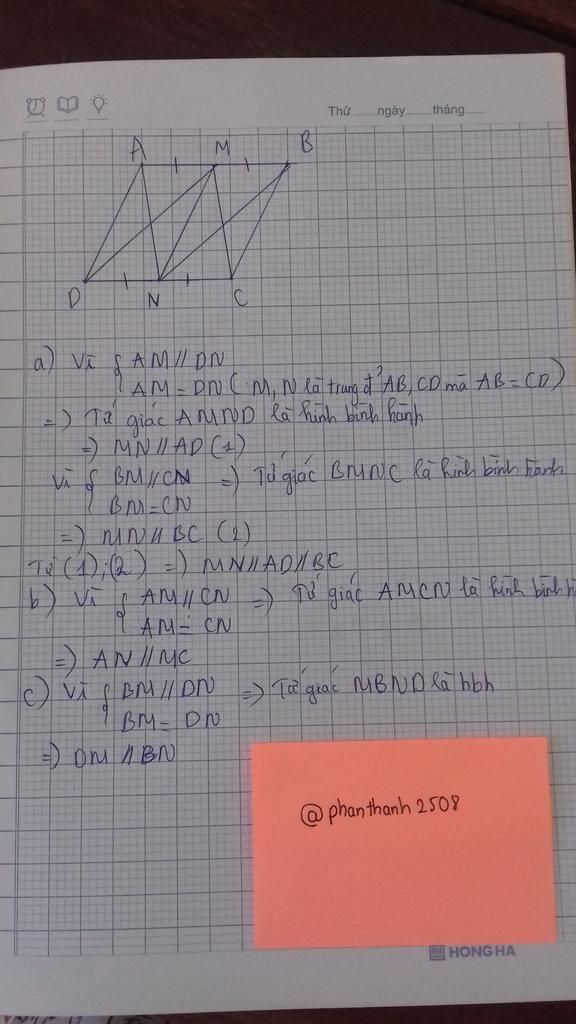 Thứ ngày tháng
A M B
D N C
a) Vì { AM // DN
AM = DN ( M, N là trung đ² AB, CD mà AB = CD)
=) Tứ giác AMND là hình bình hành
=) MN // AD (1)
Vì { BM // CN =) Tứ giác BMNC là hình bình hành
BM = CN
=) MN // BC (2)
Từ (1); (2) =) MN // AD // BC
b) Vì { AM // CN =) Tứ giác AMCN là hình bình h
AM = CN
=) AN // MC
c) Vì { BM // DN =) Tứ giác MBND là hbh
BM = DN
=) DM // BN
@phanthanh2508
HH HONG HA